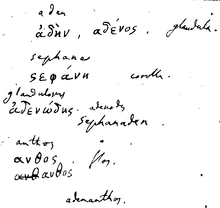 aden
ἀδὴν, ἀδένος, glandula.
sephane
ςεφάνη corolla
glandulosus
ἀδενώδης adenodes
Sephanaden
anthos
ανθος, flos.
ανθ ανθος
adenanthos.